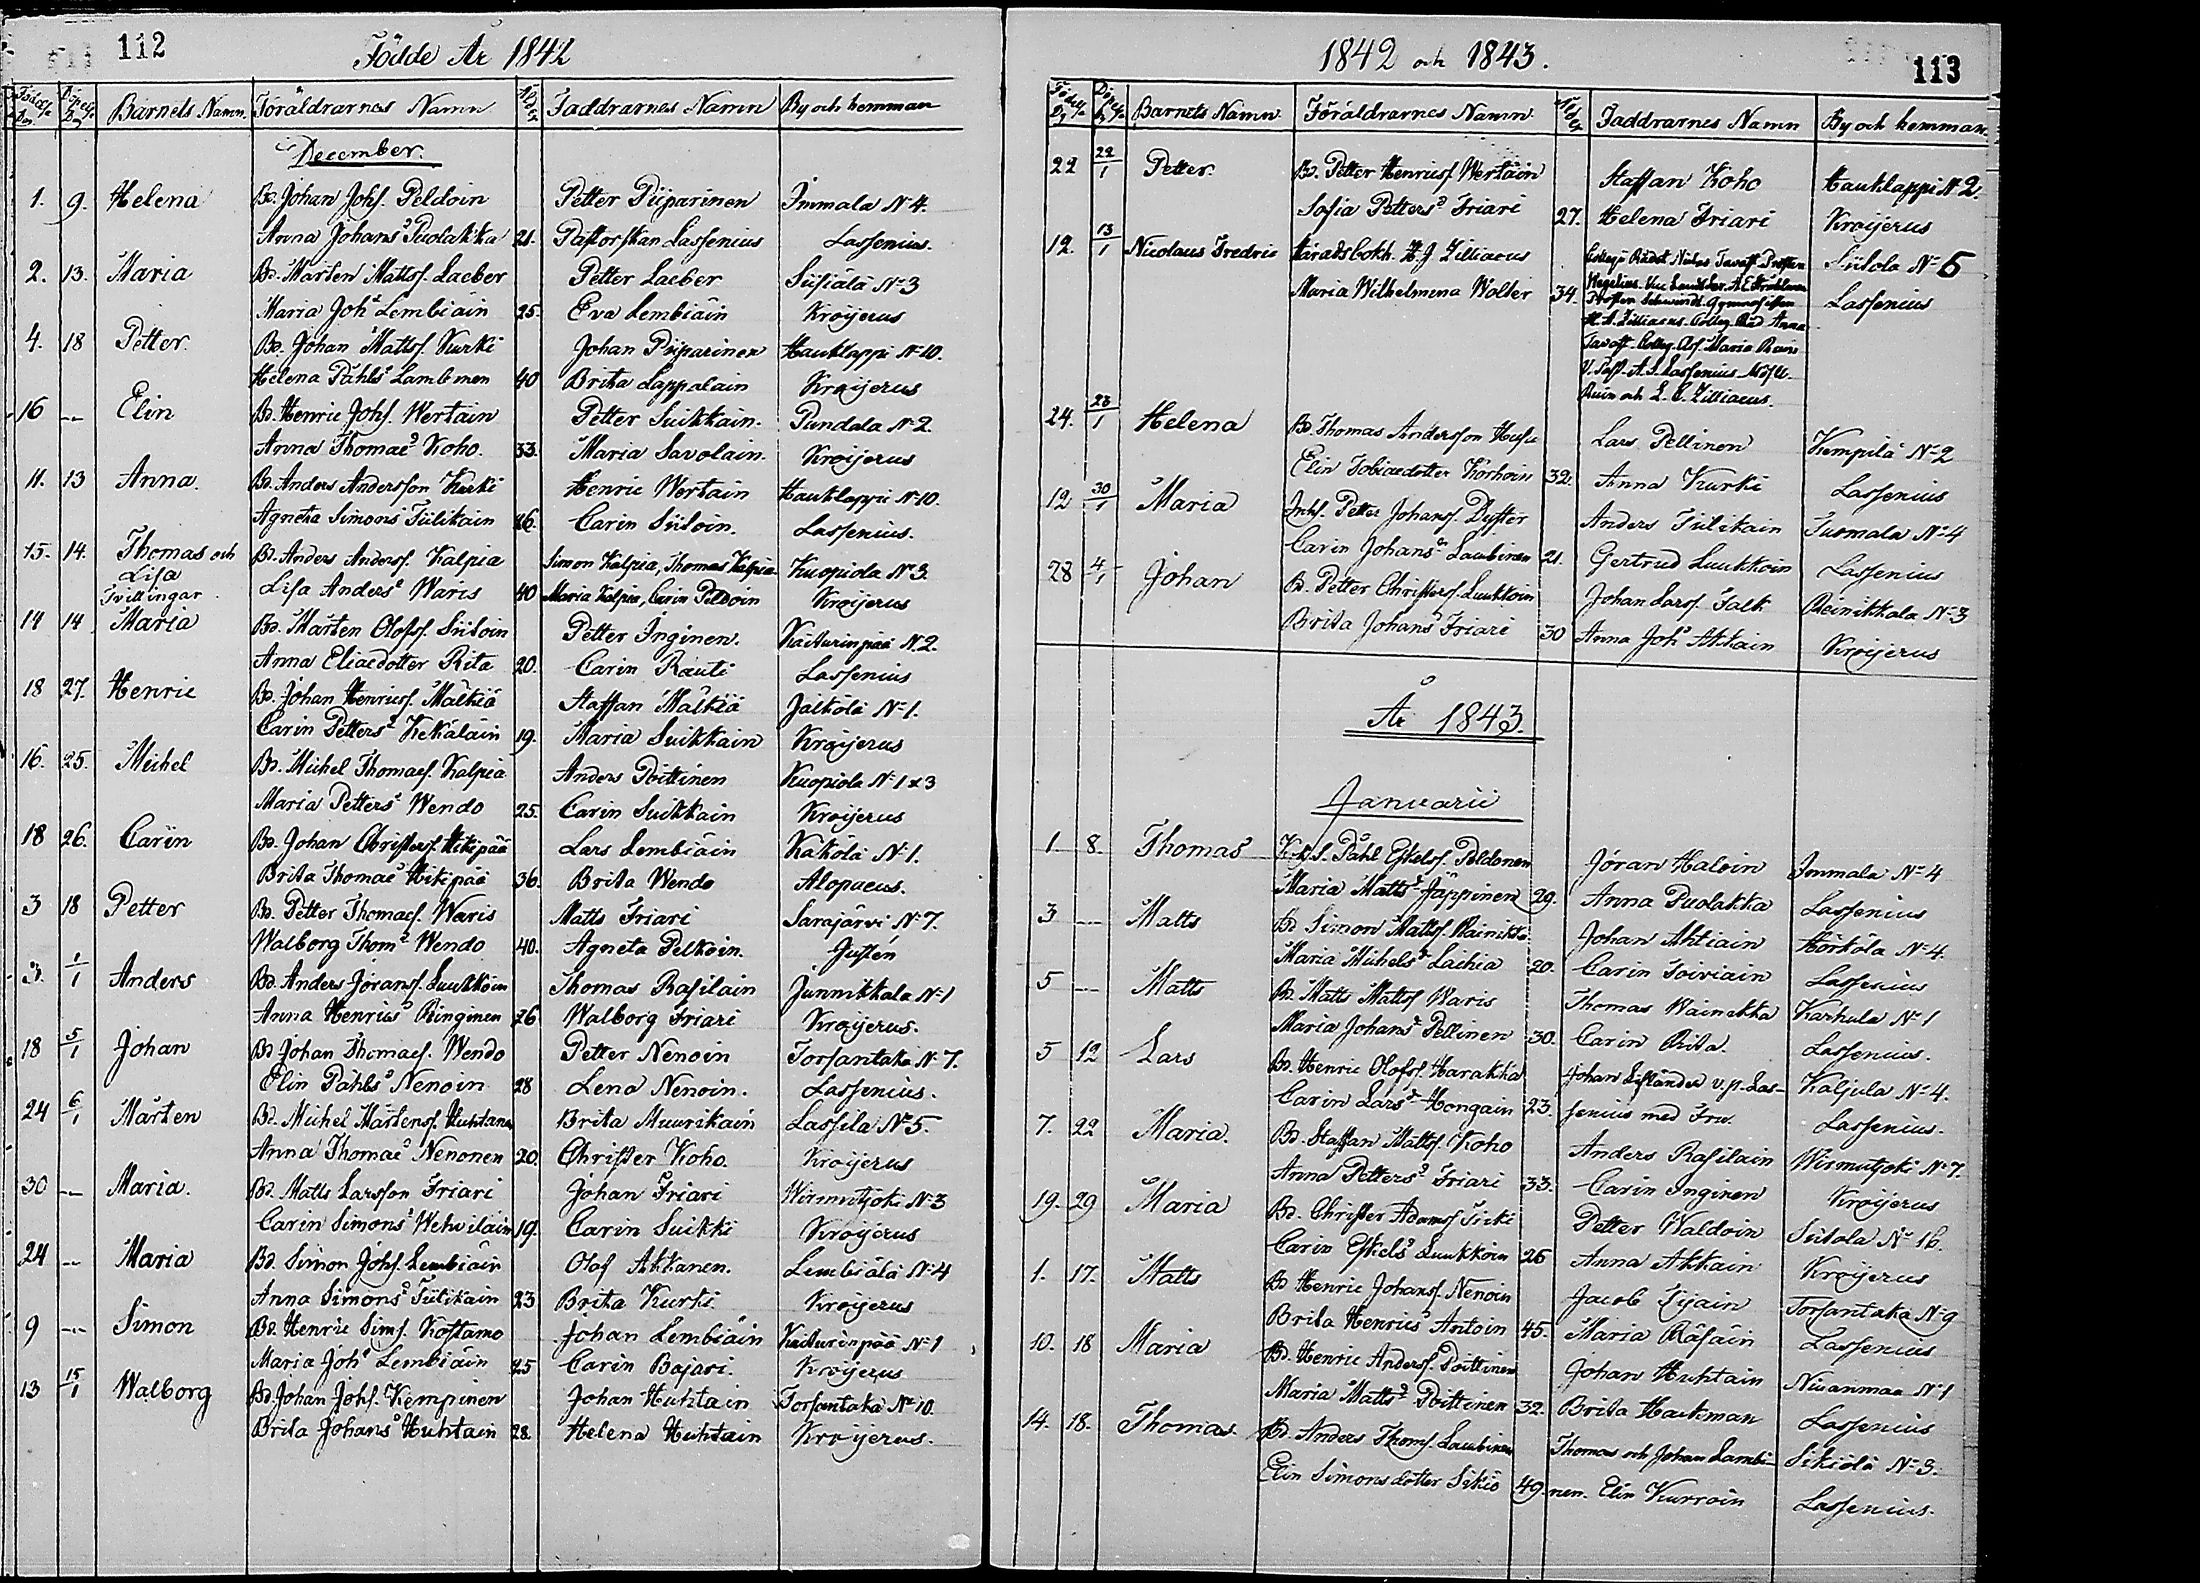 112
Födde År 1842
Födelse Dag Döpelse Dag Barnets Namn Föräldrarnes Namn Ålder Faddrarnes Namn By och hemman
December.
1. 9. Helena Bd. Johan Johs. Peldoin Petter Piiparinen Immala No 4.
Anna Johansd Puolakka 21. Pastorskan Lassenius Lassenius.
2. 13. Maria Bd. Mårten Mattss. Laeber Petter Laeber Siisiälä No 3
Maria Johd Lembiäin 25. Eva Lembiäin Kröijerus
4. 18 Petter Bd. Johan Mattss. Kurki Johan Piiparinen Hauklappi No 10.
Helena Påhlsd Lambinen 40 Brita Lappalain Kröijerus
16 -- Elin Bd. Henric Johs. Wertäin Petter Suikkain. Pundala No 2.
Anna Thomaed Koho. 33. Maria Savolain. Kröijerus
11. 13 Anna. Bd. Anders Andersson Kurki Henric Wertäin Hauklappi No 10.
Agneta Simonsd Tiilikain 26. Carin Siiloin. Lassenius.
15. 14. Thomas och Bd. Anders Anderss. Kalpia Simon Kalpia, Thomas Kalpia Kuopiola No 3.
Lisa Lisa Andersd Waris 40 Maria Kalpia, Carin Peldoin Kröijerus
Tvillingar.
14 14 Maria Bd. Mårten Olofss. Siiloin Petter Inginen. Kaiturinpää No 2.
Anna Eliaedotter Rita 20. Carin Rauti Lassenius
18 27. Henric Bd. Johan Henricss. Mälkiä Staffan Mälkiä Jälkölä No 1.
Carin Pettersd Kekäläin 19. Maria Suikkain Kröijerus
16. 25. Michel Bd. Michel Thomaes. Kalpia Anders Poittinen Kuopiola No 1 x 3
Maria Pettersd Wendo 25. Carin Suikkain Kröijerus
18 26. Carin Bd. Johan Christers. Hikipää Lars Lembiäin Käkölä No 1.
Brita Thomaed Hikipää 36. Brita Wendo Alopaeus.
3 18 Petter Bd. Petter Thomaes. Waris Matts Friari Sarajärvi No 7.
Walborg Thomd Wendo 40. Agneta Pelkoin. Justén
3. 1/1 Anders Bd. Anders Jöranss. Luukkoin Thomas Rasilain Junnikkala No 1
Anna Henricsd Ringinen 26 Walborg Friari Kröijerus.
18 5/1 Johan Bd. Johan Thomaes. Wendo Petter Nenoin Torsantaka No 7.
Elin Påhlsd Nenoin 28 Lena Nenoin. Lassenius.
24 6/1 Mårten Bd. Michel Mårtenss. Huhtanen Brita Muurikain Lassila No 5.
Anna Thomaed Nenonen 20. Christer Koho. Kröijerus
30 -- Maria. Bd. Matts Larsson Friari Johan Friari Wirmutjoki No 3
Carin Simonsd Wehviläin 19. Carin Suikki Kröijerus
24 -- Maria Bd. Simon Johs. Lembiäin Olof Akkanen. Lembiälä No 4
Anna Simonsd Tiilikain 23 Brita Kurki. Kröijerus
9 -- Simon Bd. Henric Sims. Kostamo Johan Lembiäin Kaiturinpää No 1
Maria Johd Lembiäin 25 Carin Bajari. Kröijerus
13 15/1 Walborg Bd. Johan Johs. Kempinen Johan Huhtain Torsantaka No 10.
Brita Johansd Huhtain 28. Helena Huhtain Kröijerus.
113
1842 och 1843.
Födelse Dag Döpelse Dag Barnets Namn Föräldrarnes Namn Ålder Faddrarnes Namn By och hemman.
22 22/1 Petter Bd. Petter Henricss. Wertäin Staffan Koho Hauklappi No 2.
Sofia Pettersd Friari 27. Helena Friari Kröijerus
12. 13/1 Nicolaus Fredric Häradsbokh. H. J. Zilliacus Collegii Rådet Niclas Tavast Siitola No 5
Maria Wilhelmina Wolter 34. Lassenius
Schwindt Gymnasisten
H. A. Zilliacus. Colleg. Råd. Anna
Tavast Colleg. Ass. Maria
V. Past. A. S. Lassenius
och L. C. Zilliacus.
24. 23/1 Helena Bd. Thomas Andersson Husu Lars Pellinen Kempilä No 2
Elin Tobiaedotter Körhoin 32. Anna Kurki Lassenius
12 30/1 Maria Inhs. Petter Johanss. Dyster Anders Tiilikain Tuomala No 4
Carin Johansdr Laubinen 21. Gertrud Luukkoin Lassenius
28 4/1 Johan Bd. Petter Christerss. Luukkoin Johan Larss. Falk Reinikkala No 3
Brita Johansd Friari 30 Anna Johd Akkain Kröijerus
År 1843.
Januarii
1 8. Thomas Påhl Eskelss. Peldonen Jöran Haloin Immala No 4
Maria Mattsd Jäppinen 29. Anna Puolakka Lassenius
3 -- Matts Bd. Simon Mattss. Rainikka Johan Ahtiain Körkölä No 4.
Maria Michelsd Laihia 20. Carin Toiviain Lassenius
5 -- Matts Bd. Matts Mattss. Waris Thomas Wainikka Karhula No 1
Maria Johansd Pellinen 30. Carin Rita. Lassenius.
5 12 Lars Bd. Henric Olofss. Harakka Johan Lifländer v. p. Las- Kaljula No 4.
Carin Larsd Hongain 23. senius med Fru. Lassenius.
7. 22 Maria. Bd. Staffan Mattss. Koho Anders Rasilain Wirmutjoki No 7.
Anna Pettersd Friari 33. Carin Inginen Kröijerus
19. 29 Maria Bd. Christer Adamss. Sirki Petter Waldoin Siitola No 16.
Carin Eskelsd Luukkoin 26 Anna Akkain Kröijerus
1. 17. Matts Bd Henric Johanss. Nenoin Jacob Tijain Torsantaka No 9
Brita Henricsd Antoin 45. Maria Räsäin Lassenius
10. 18 Maria Bd. Henric Anderss. Poittinen Johan Huhtain Niwanmaa No 1
Maria Mattsd Poittinen 32. Brita Hackman Lassenius
14. 18. Thomas. Bd. Anders Thoms. Laubinen Thomas och Johan Lambi- Sikiölä No 3.
Elin Simonsdotter Sikiö 49. nen. Elin Kurroin Lassenius.